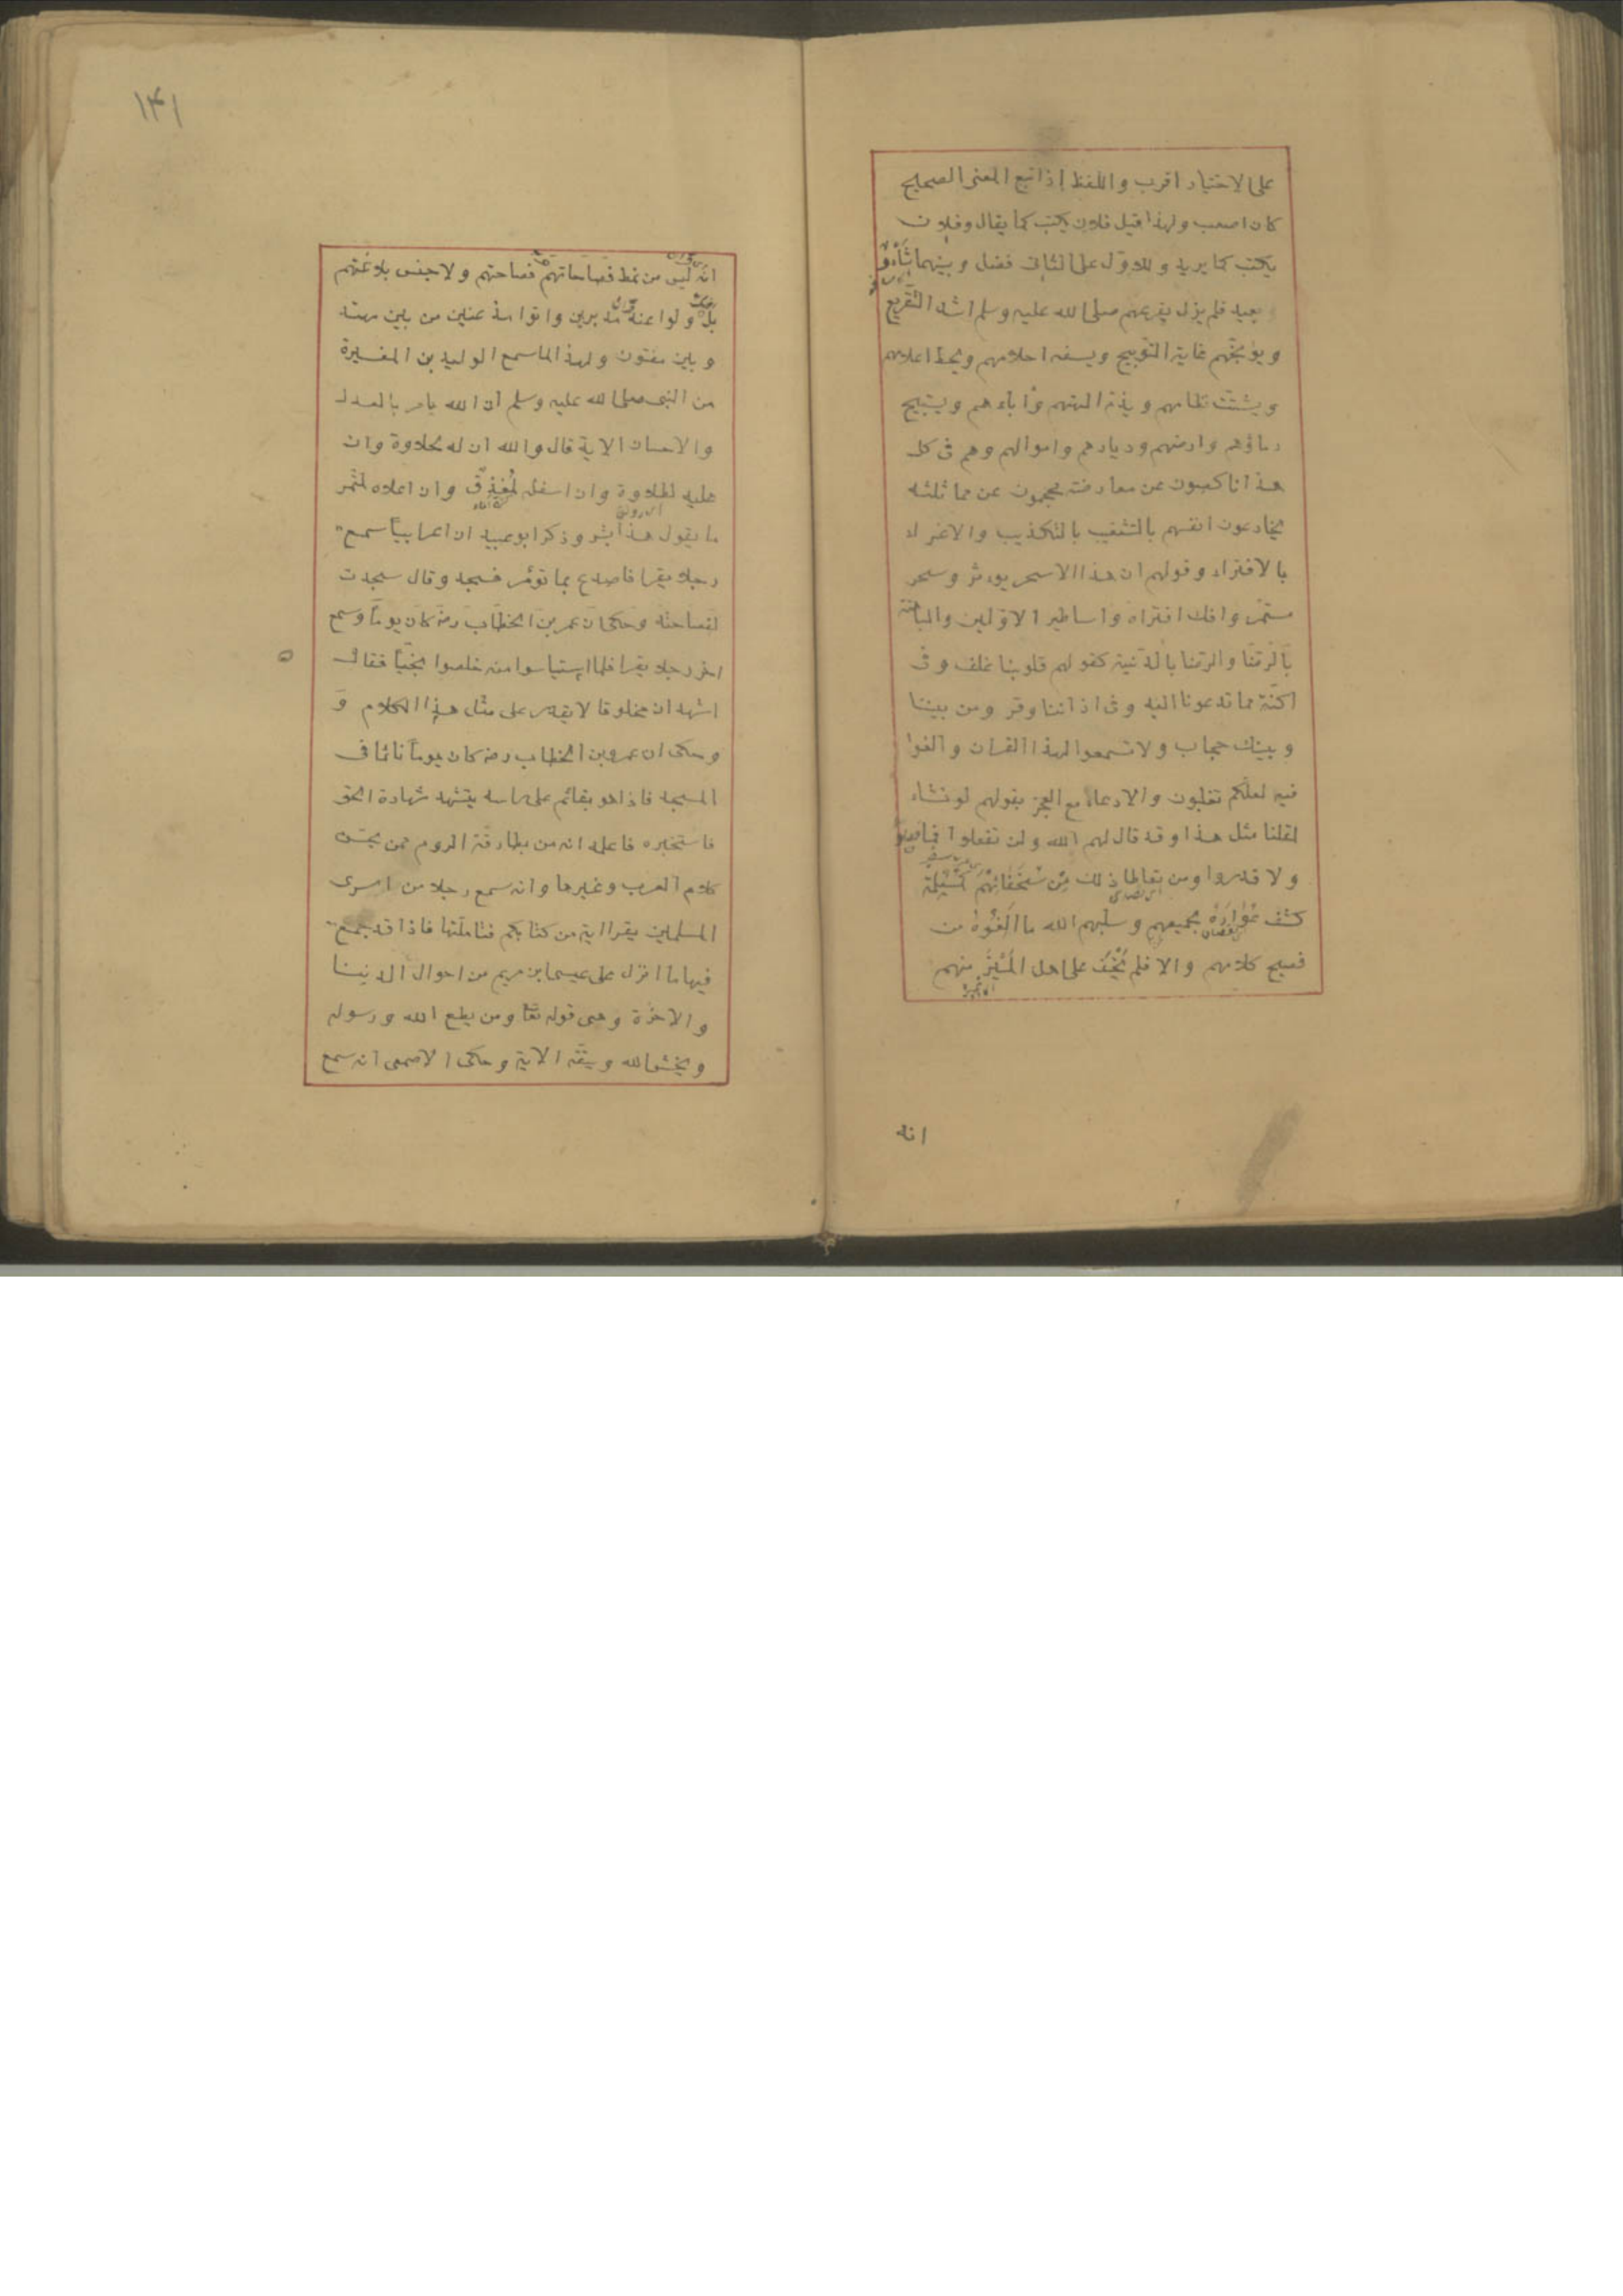 على الاختيار اقرب واللفظ اذا تبع المعنى الصحيح
كان اصعب ولهذا قيل فلان يكتب كما يقال وفلان
يكتب كما يريد وللاوّل على الثانى فضل وبينهما شأو
بعيد فلم يزل يقرعهم صلى الله عليه وسلم اشد التقريع
ويوبّخهم غاية التوبيخ ويسفه احلامهم ويحط اعلامهم
ويشتت نظامهم ويذم الهتهم وآباءهم ويستبيح
دماؤهم وارضهم وديارهم واموالهم وهم فى كل
هذا ناكصون عن معارضته محجمون عن مماثلته
يخادعون انفسهم بالتشغيب بالتكذيب والاغراء
بالافتراء وقولهم ان هذا الا سحر يوثر وسحر
مستمر وافك افتراه واساطير الاولين والمباهتة
والرضا بالدنية كقولهم قلوبنا غلف وفى
اكنّة مما تدعونا اليه وفى اذاننا وقر ومن بيننا
وبينك حجاب ولا تسمعوا لهذا القران والغوا
فيه لعلكم تغلبون والادعاء مع العجز بقولهم لو نشاء
لقلنا مثل هذا وقد قال لهم الله ولن تفعلوا فما فعلوا
ولا قدروا ومن تعاطا ذلك من سخفائهم كمسيلمة
كشف عواره لجميعهم وسلبهم الله ما الفوه من
فصيح كلامهم والا فلم يخف على اهل الميز منهم
انه
١٤١
انه ليس من نمط فصاحتهم ولا جنس بلاغتهم
بل ولوا عنه مدبرين واتوا مذعنين من بين مهتد
وبين مفتون ولهذا لما سمع الوليد بن المغيرة
من النبى صلى الله عليه وسلم ان الله يامر بالعدل
والاحسان الاية قال والله ان له لحلاوة وان
عليه لطلاوة وان اسفله لمغدق وان اعلاه لمثمر
ما يقول هذا بشر وذكر ابو عبيد ان اعرابيا سمع
رجلا يقرا فاصدع بما تؤمر فسجد وقال سجدت
لفصاحته وحكى ان عمر بن الخطاب رضه كان يوما وسمع
اخر رجلا يقرا فلما استياسوا منه خلصوا نجيّا فقال
اشهد ان مخلوقا لا يقدر على مثل هذا الكلام و
وحكى ان عمر بن الخطاب رضه كان يوما نائما فى
المسجد فاذا هو بقائم على راسه يتشهد شهادة الحق
فاستخبره فاعلمه انه من بطارقة الروم ممن يحسن
كلام العرب وغيرها وانه سمع رجلا من اسرى
المسلمين يقرا اية من كتابكم فتاملتها فاذا قد جمع
فيها ما انزل على عيسى ابن مريم من احوال الدنيا
والاخرة وهى قوله تعا ومن يطع الله ورسوله
ويخش الله ويتقه الاية وحكى الاصمعى انه سمع